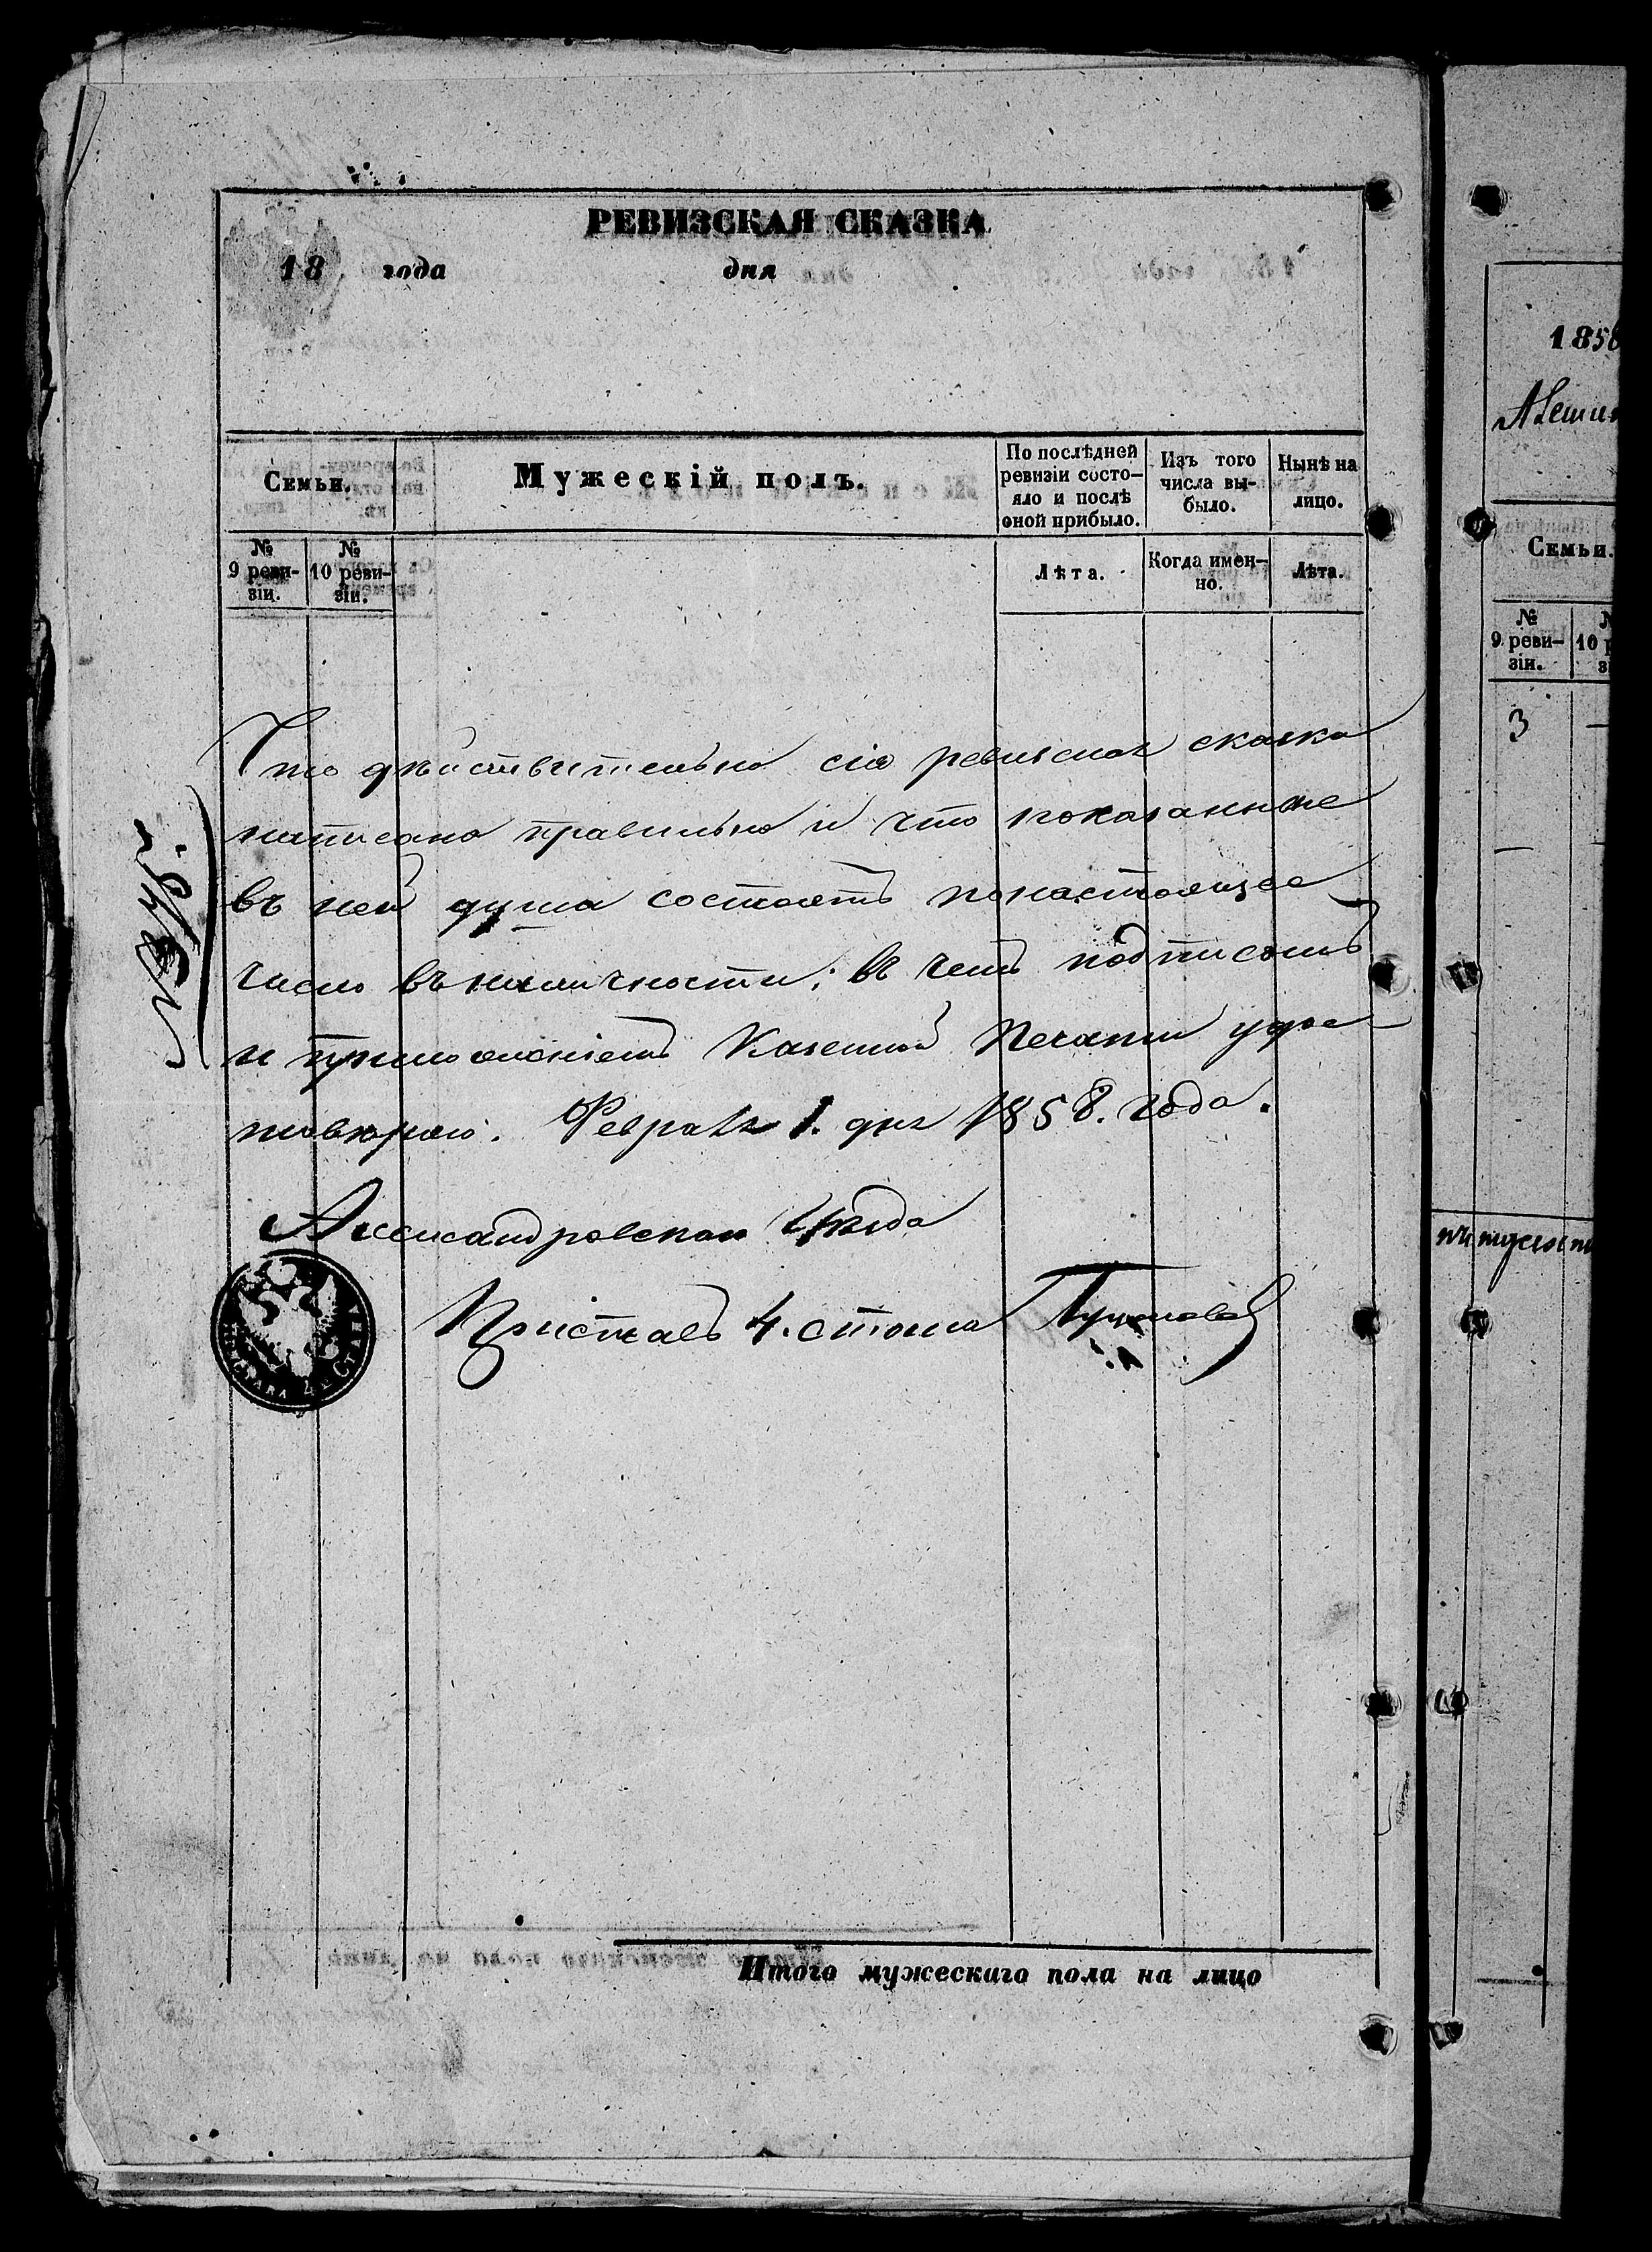 РЕВИЗСКАЯ СКАЗКА
18 года дня
Семьи.
Мужескій полъ.
По послѣдней ревизіи состо-
яло и послѣ
оной прибыло.
Изъ того
числа вы-
было.
Нынѣ на
лицо.
№
9 реви-
зіи.
№
10 реви-
зіи.
Лѣта.
Когда имен-
но.
Лѣта.
Что дѣйствительно сія ревизская сказка
написана правильно и что показанные
въ ней душа состоятъ понастоящее
число въ наличности; въ чемъ подписомъ
и приложеніемъ Казенной Печати удос-
товѣряю. Февраля 1. дня 1858. года.
Александровскаго уѣзда
Приставъ 4. стана
Итого мужескаго пола на лицо
1858
Семьи.
№
9 реви-
зіи.
10
3